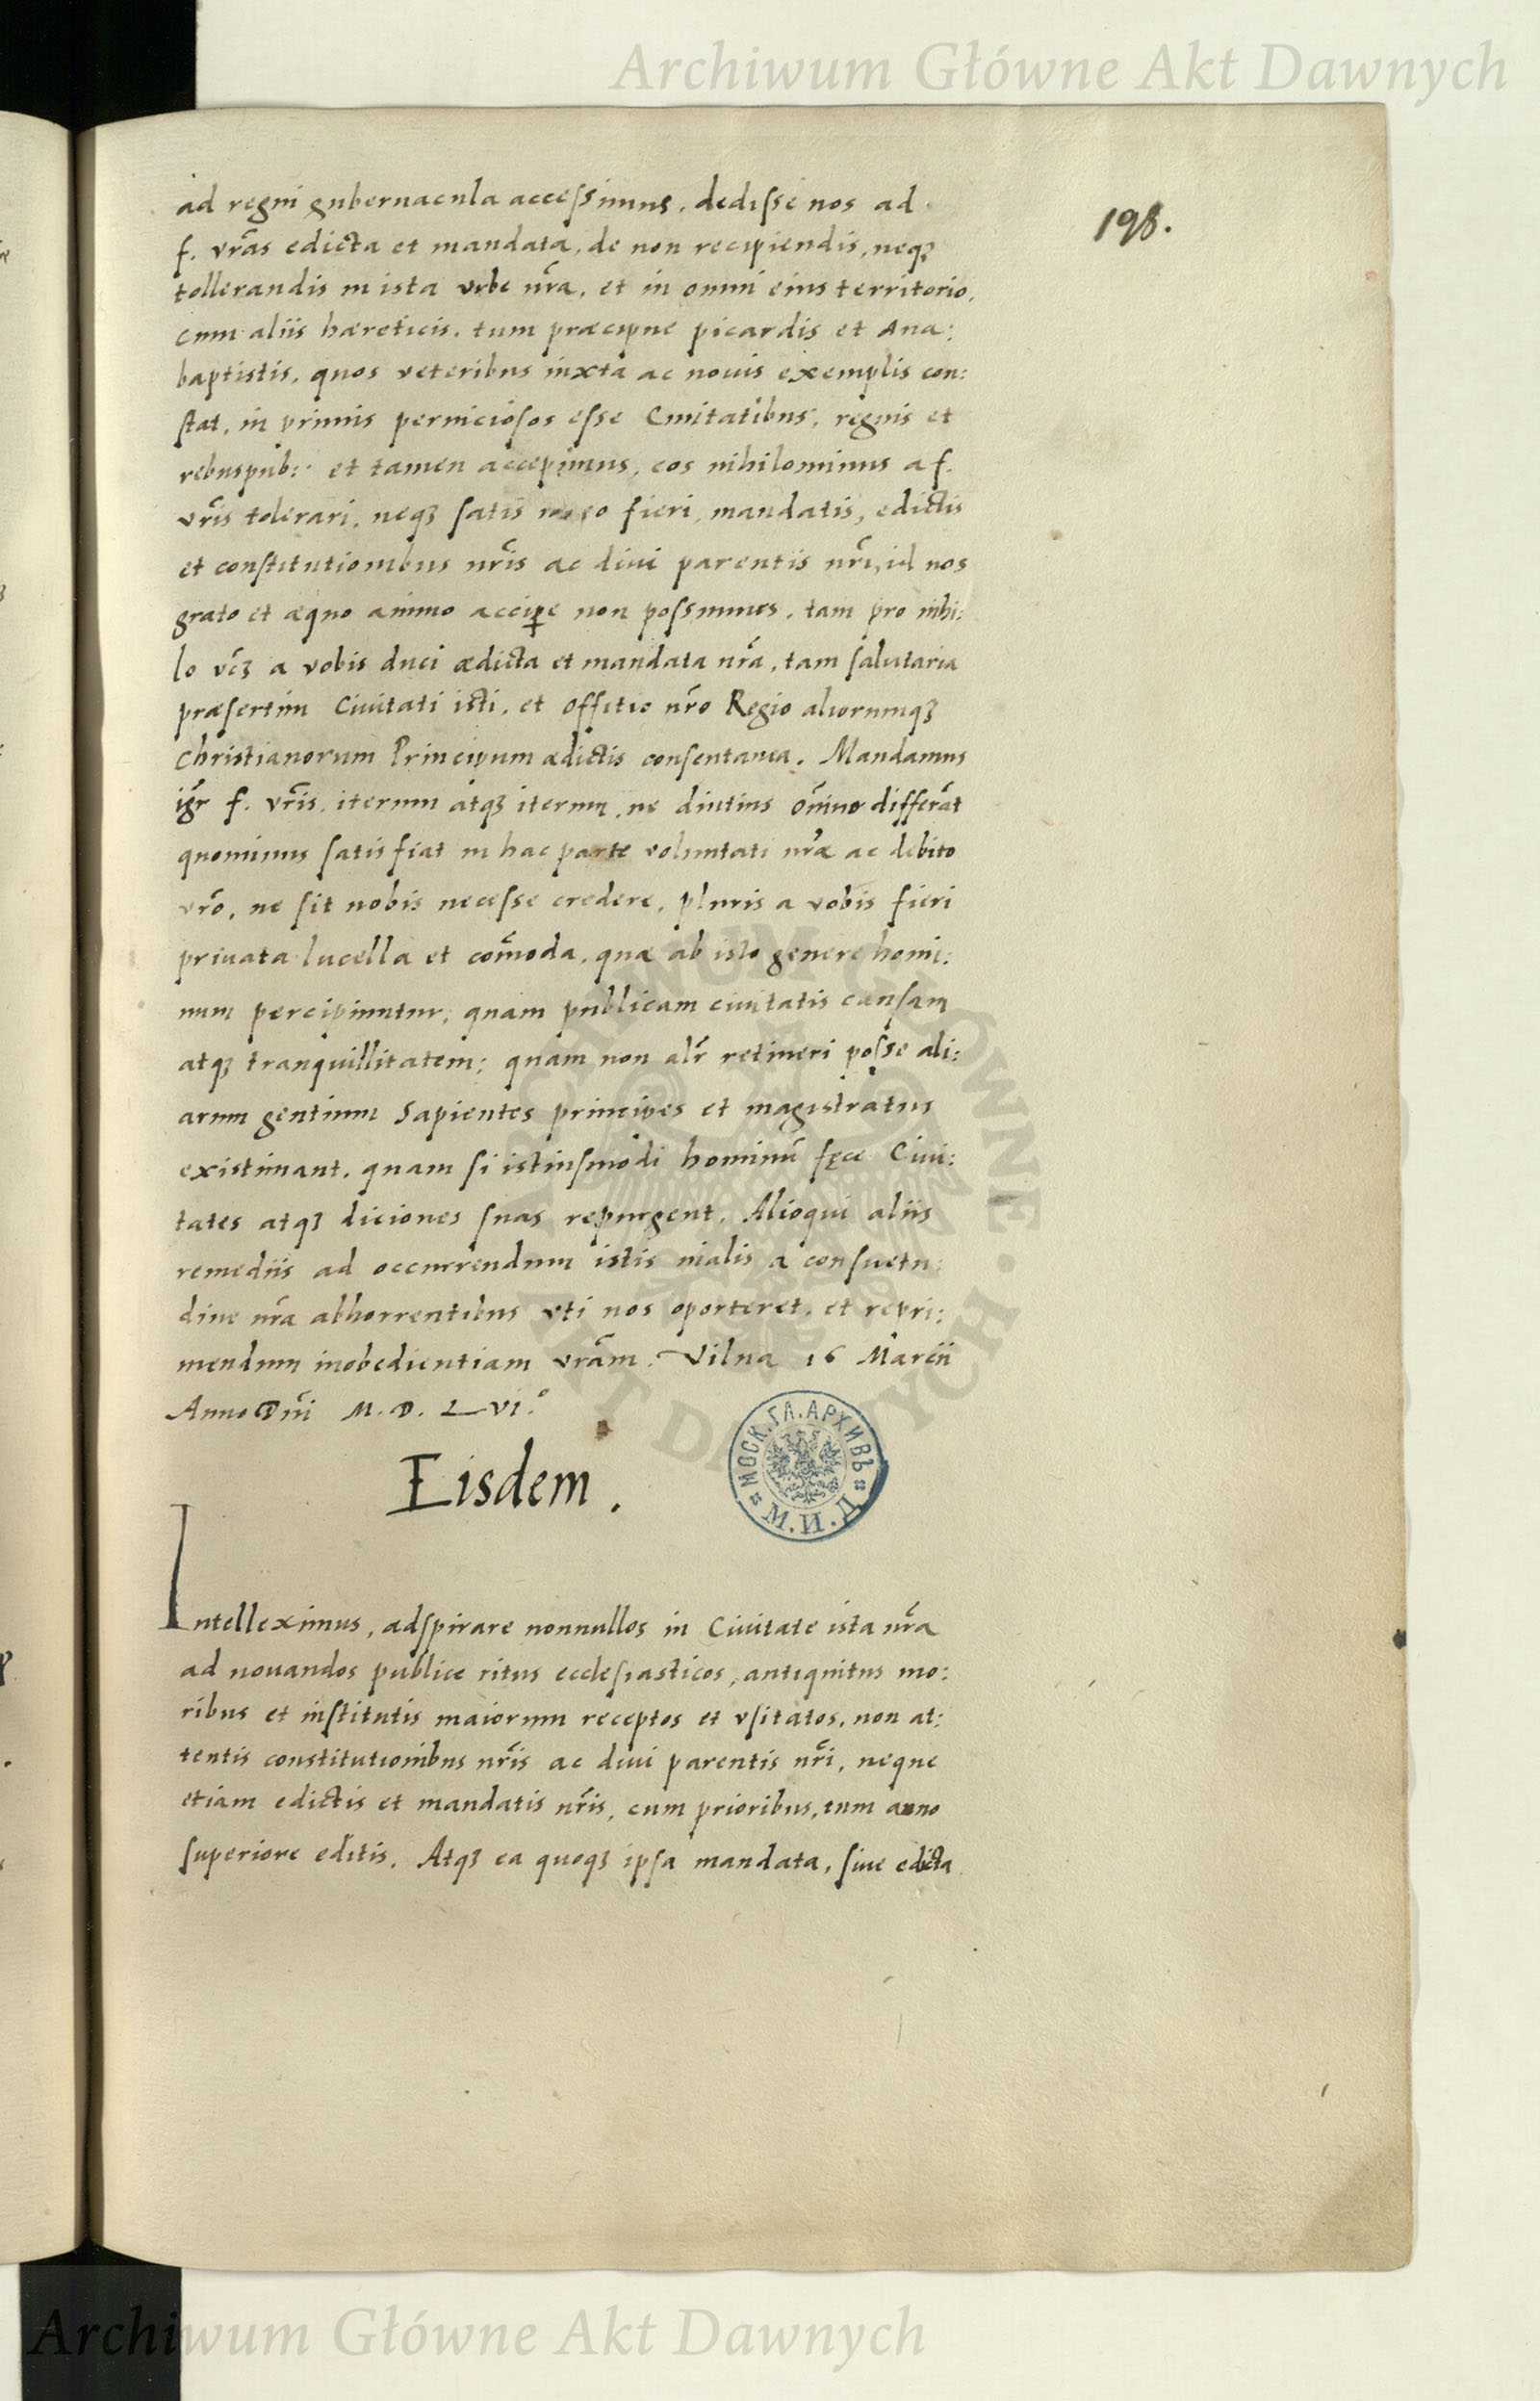 Archiwum Główne Akt Dawnych
198.
ad regni gubernacula accessimus, dedisse nos ad
f. vr̃as edicta et mandata, de non recipiendis, neqꝫ
tollerandis in ista vrbe nr̃a, et in omni eius territorio,
cum aliis hæreticis, tum præcipue picardis et Ana:
baptistis, quos veteribus iuxta ac nouis exemplis con:
stat, in primis perniciosos esse Ciuitatibus, regnis et
rebuspub: et tamen accepimus, eos nihilominus a f.
vr̃is tolerari, neqꝫ satis fieri, mandatis, edictis
et constitutionibus nr̃is ac diui parentis nr̃i, id nos
grato et æquo animo acciꝑe non possumus, tam pro nihi:
lo vr̃ꝫ a vobis duci ædicta et mandata nr̃a, tam salutaria
præsertim Ciuitati isti, et offitio nr̃o Regio aliorumqꝫ
Christianorum Principum ædictis consentanea. Mandamus
igr̃ f. vr̃is, iterum atqꝫ iterum, ne diutius om̃ino differãt
quominus satis fiat in hac parte voluntati nr̃æ ac debito
vr̃o, ne sit nobis necesse credere, pluris a vobis fieri
priuata lucella et com̃oda, quæ ab isto genere homi:
num percipiuntur, quam publicam ciuitatis causam
atqꝫ tranquillitatem; quam non alr̃ retineri posse ali:
arum gentium Sapientes principes et magistratus
existimant, quam si istiusmodi hominũ fęce Ciui:
tates atqꝫ diciones suas repurgent. Alioqui aliis
remediis ad occurrendum istis malis a consuetu:
dine nr̃a abhorrentibus vti nos oporteret, et repri:
mendum inobedientiam vr̃am. Vilna 16 Marcii
Anno Dñi M. D. LVI.º
Eisdem.
МОСК. ГЛ. АРХИВЪ
М. И. Д.
Intelleximus, adspirare nonnullos in Ciuitate ista nr̃a
ad nouandos publice ritus ecclesiasticos, antiquitus mo:
ribus et institutis maiorum receptos et vsitatos, non at:
tentis constitutionibus nr̃is ac diui parentis nr̃i, neque
etiam edictis et mandatis nr̃is, cum prioribus, tum anno
superiore editis. Atqꝫ ea quoqꝫ ipsa mandata, siue edicta
Archiwum Główne Akt Dawnych